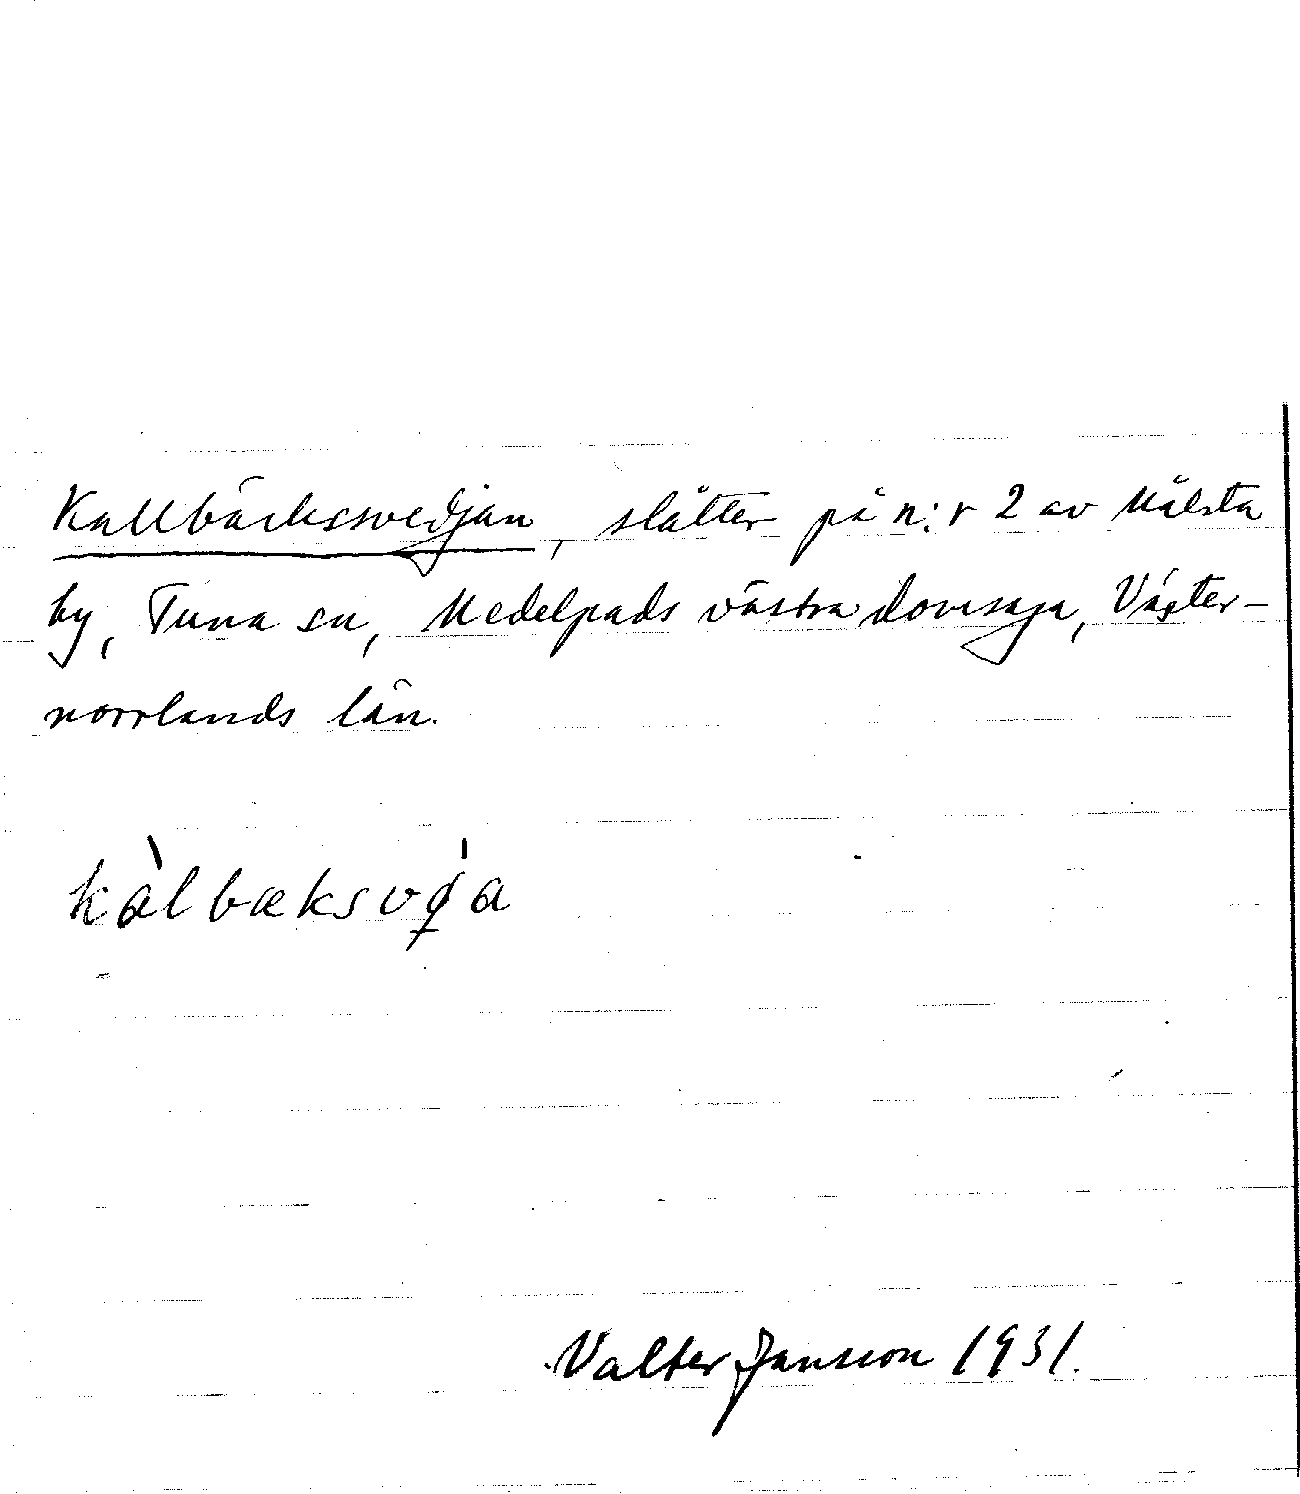 Kallbäckssvedjan, slåtter på n:r 2 av Målsta
by, Tuna sn, Medelpads västra domsaga, Väster-
norrlands län.
Valter Jansson 1931.